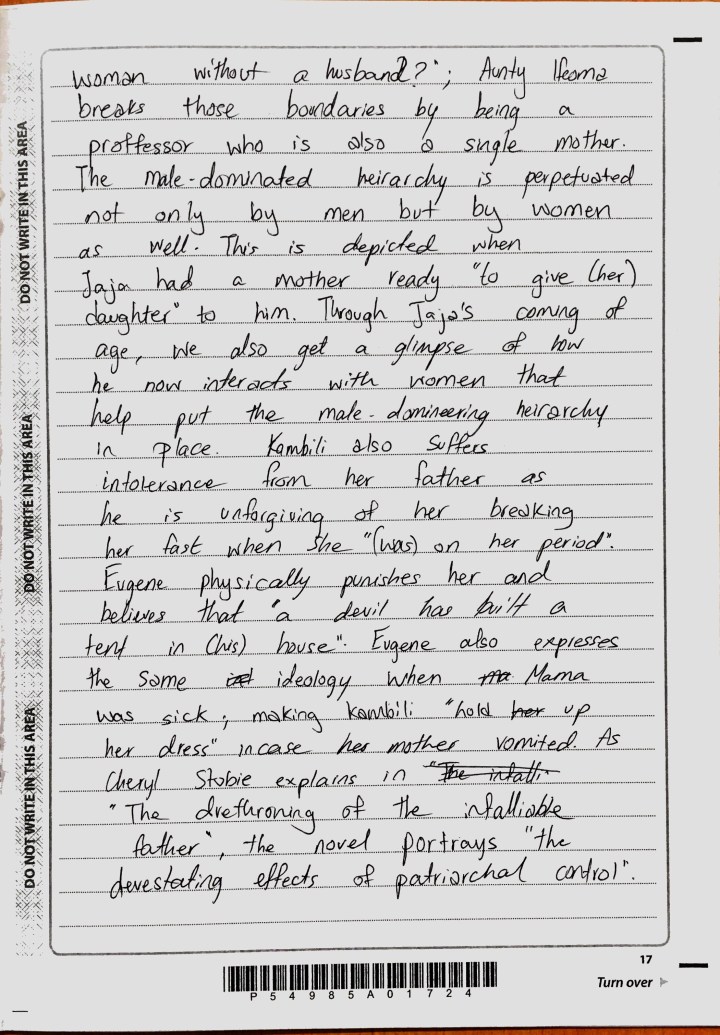 woman without a husband?"; Aunty Ifeoma
breaks those boundaries by being a
proffessor who is also a single mother.
The male-dominated heirarchy is perpetuated
not only by men but by women
as well. This is depicted when
Jaja had a mother ready "to give (her)
daughter" to him. Through Jaja's coming of
age, we also get a glimpse of how
he now interacts with women that
help put the male-domineering heirarchy
in place. Kambili also suffers
intolerance from her father as
he is unforgiving of her breaking
her fast when she "(was) on her period".
Eugene physically punishes her and
believes that "a devil has built a
tent in (his) house". Eugene also expresses
the same ideology when Mama
was sick; making Kambili "hold her up
her dress" incase her mother vomited. As
Cheryl Stobie explains in "The infalli
"The drethroning of the infalliable
father", the novel portrays "the
devestating effects of patriarchal control".
DO NOT WRITE IN THIS AREA
DO NOT WRITE IN THIS AREA
DO NOT WRITE IN THIS AREA
17
Turn over
P54985A01724